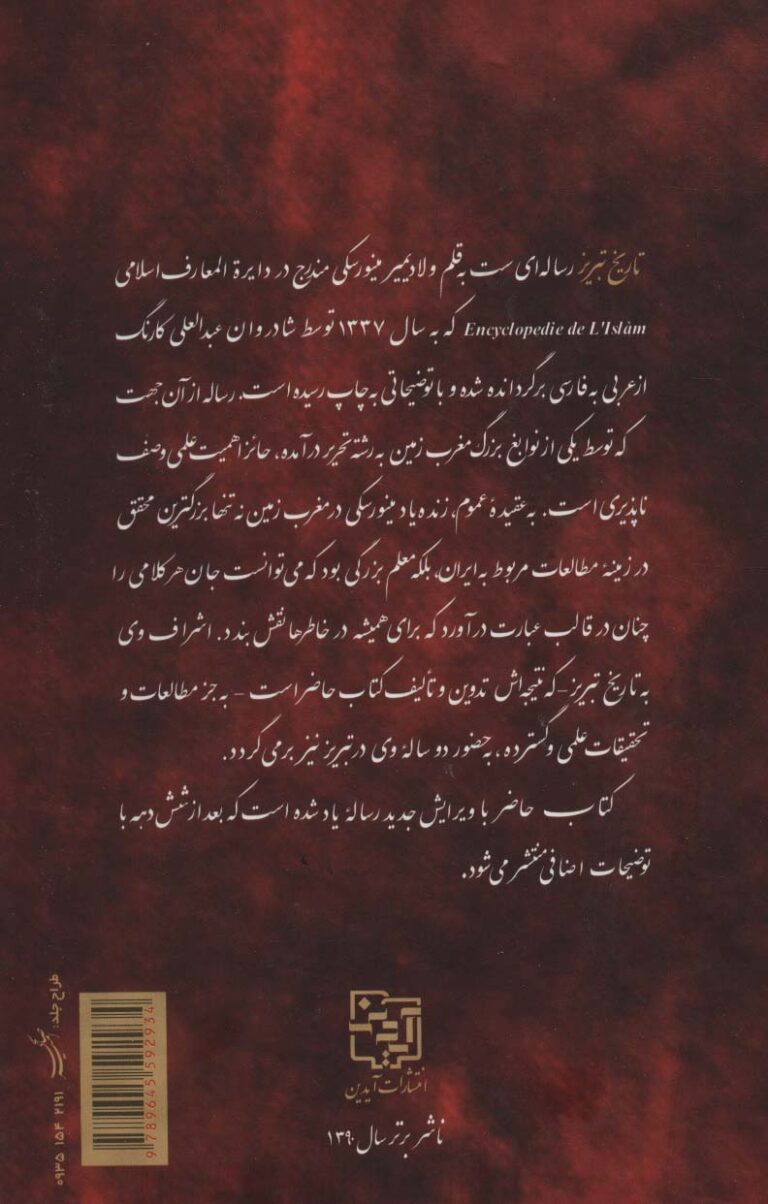 تاریخ تبریز رساله‌ای ست به قلم ولادیمیر مینورسکی مندرج در دایرة المعارف اسلامی
Encyclopedie de L'Islàm که به سال ۱۳۳۷ توسط شادروان عبدالعلی کارنگ
از عربی به فارسی برگردانده شده و با توضیحاتی به چاپ رسیده است. رساله از آن جهت
که توسط یکی از نوابغ بزرگ مغرب زمین به رشته تحریر درآمده، حائز اهمیت علمی وصف
ناپذیری است. به عقیدهٔ عموم، زنده یاد مینورسکی در مغرب زمین نه تنها بزرگترین محقق
در زمینهٔ مطالعات مربوط به ایران، بلکه معلم بزرگی بود که می‌توانست جان هر کلامی را
چنان در قالب عبارت درآورد که برای همیشه در خاطرها نقش بندد. اشراف وی
به تاریخ تبریز - که نتیجه‌اش تدوین و تألیف کتاب حاضر است - به جز مطالعات و
تحقیقات علمی و گسترده، به حضور دو سالهٔ وی در تبریز نیز برمی‌گردد.
کتاب حاضر با ویرایش جدید رسالهٔ یاد شده است که بعد از شش دهه با
توضیحات اضافی منتشر می‌شود.
آیدین
انتشارات آیدین
ناشر برتر سال ۱۳۹۰
9 789645 592934
طراح جلد:
۰۹۳۵ ۱۵۴ ۲۱۹۱